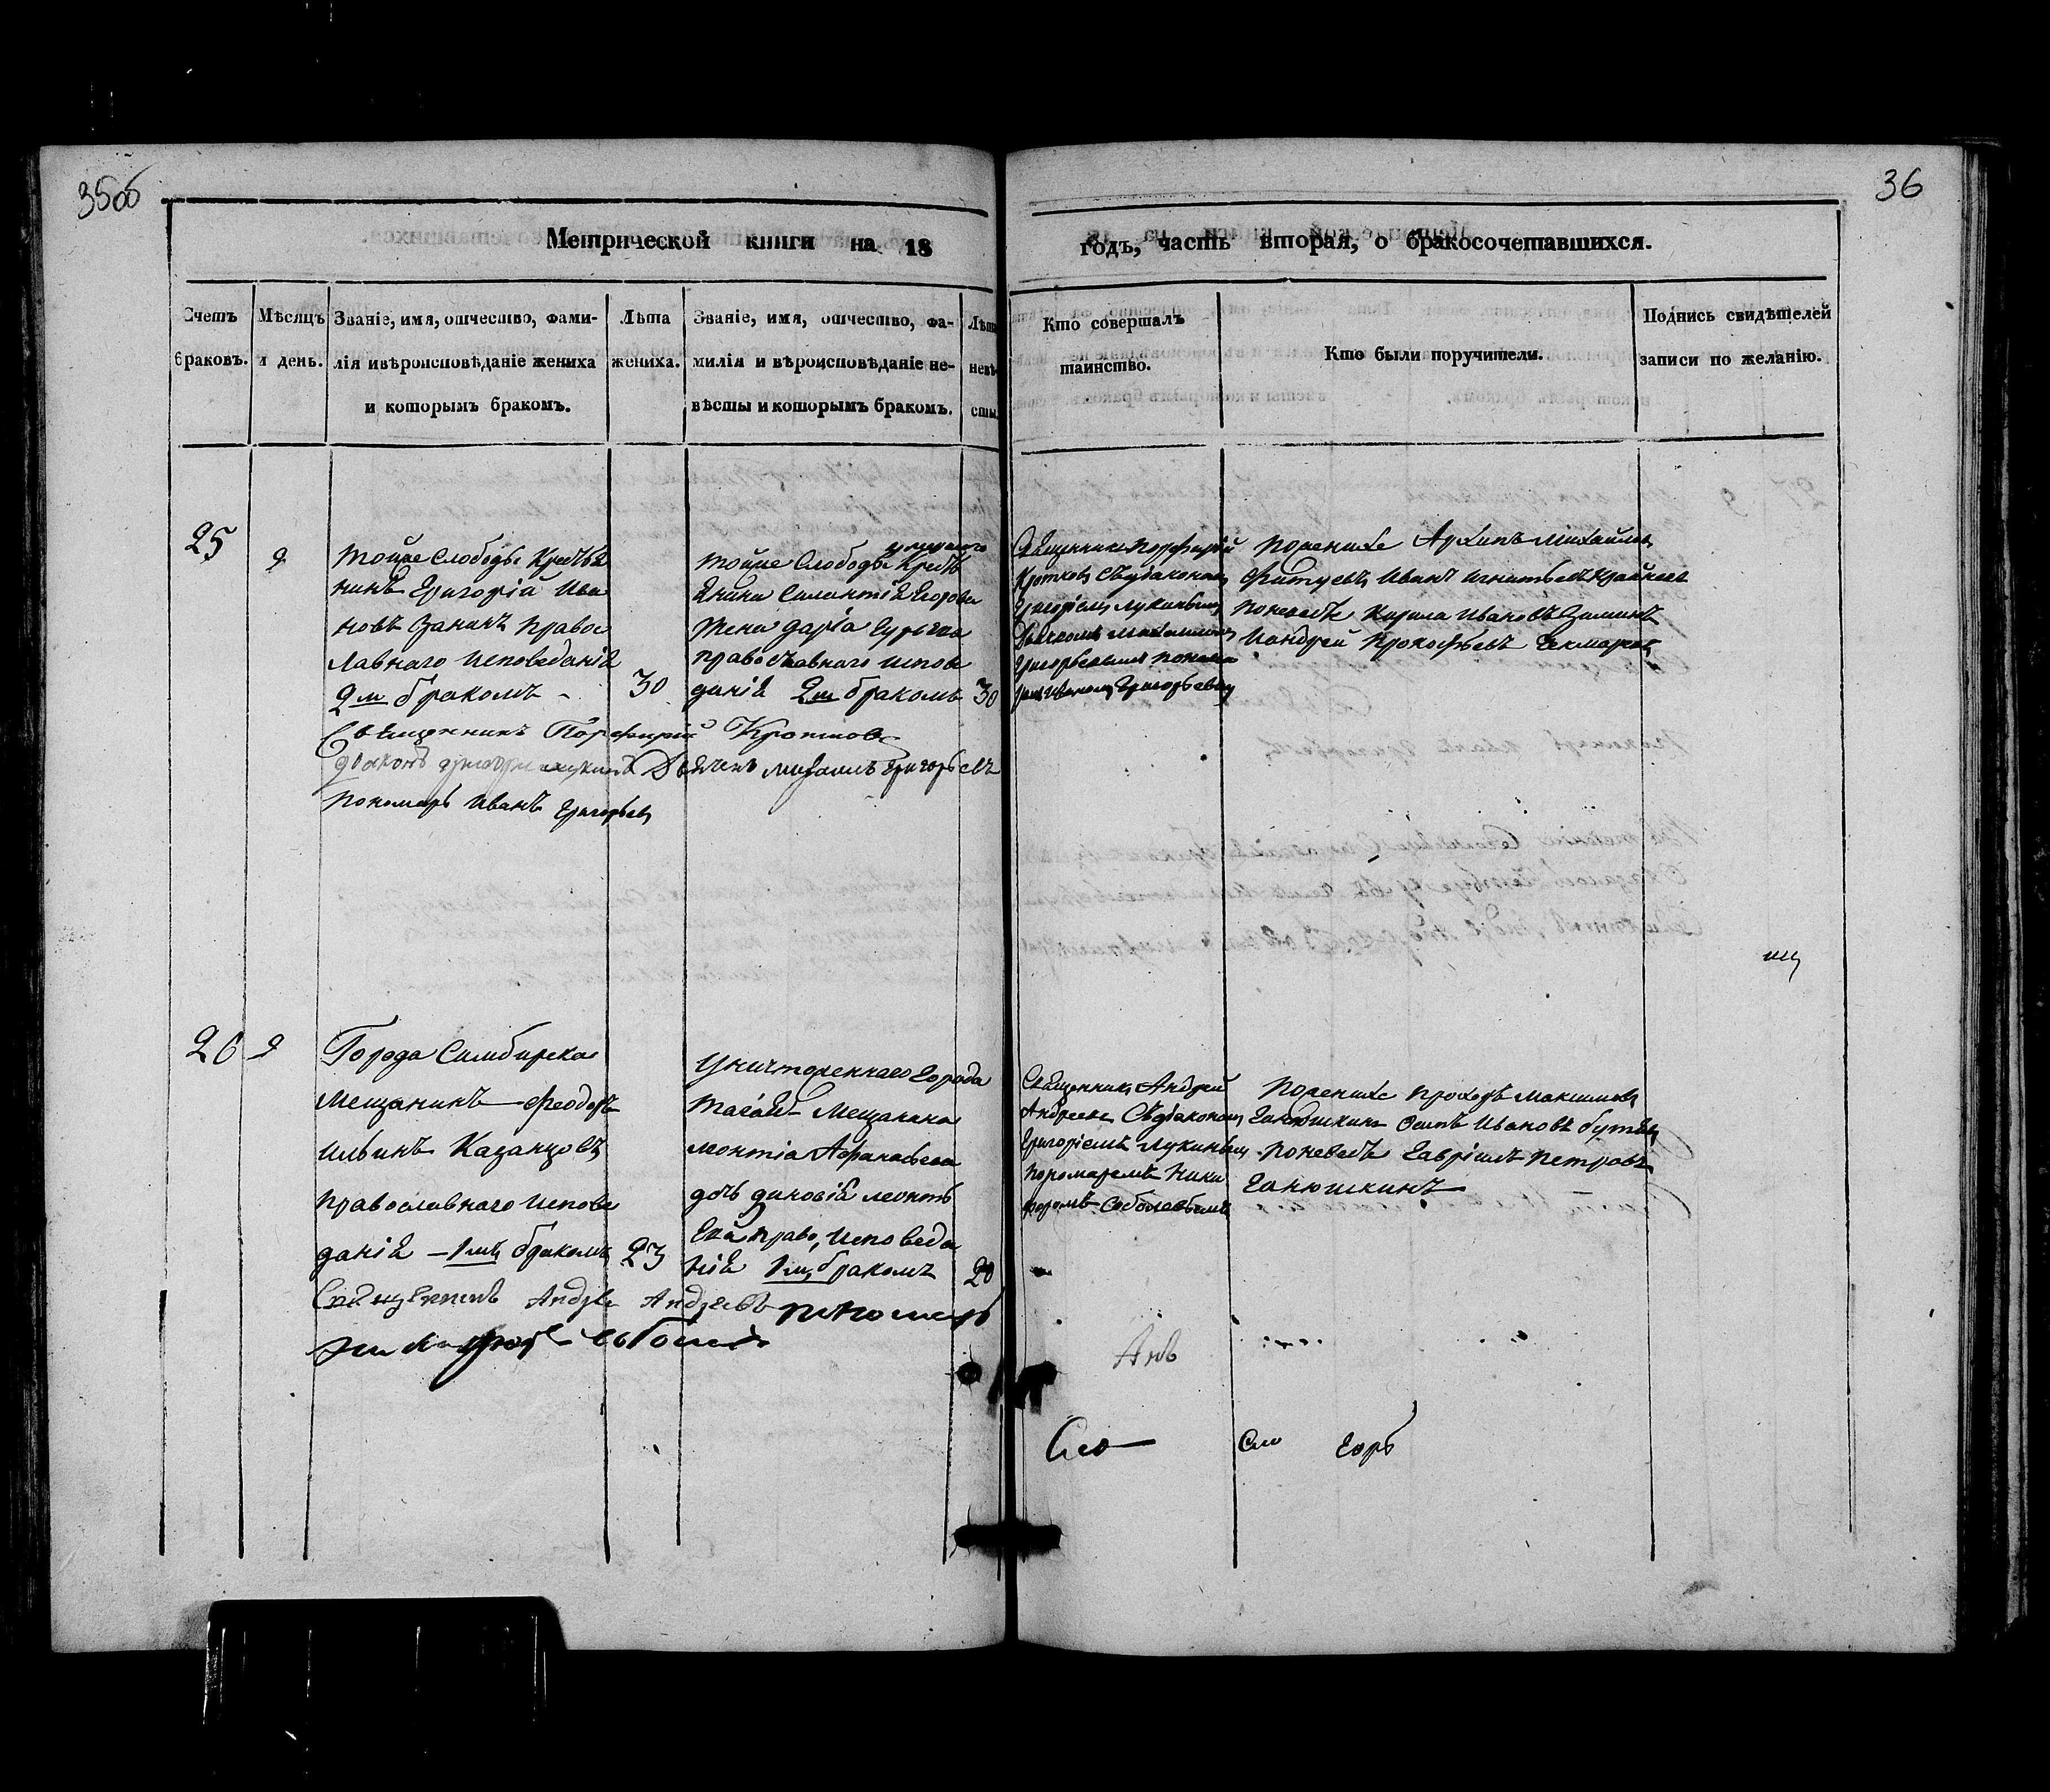 35об
36
Метрической книги на 18
годъ, часть вторая, о бракосочетавшихся.
Счетъ браковъ.
Мѣсяцъ и день.
Званіе, имя, отчество, фами-
лія и вѣроисповѣданіе жениха
и которымъ бракомъ.
Лѣта
жениха.
Званіе, имя, отчество, фа-
милія и вѣроисповѣданіе не-
вѣсты и которымъ бракомъ.
Лѣта
невѣ-
сты.
Кто совершалъ
таинство.
Кто были поручители.
Подпись свидѣтелей
записи по желанію.
25
9
тойже Слободы Крестья
нинъ Григорій Ива
новъ Занинъ Правос
лавнаго исповеданія
2м бракомъ
30
умершаго
тойже Слободы Крест
янина Силантія Егорова
жена Дарья
православнаго испове
данія 2м бракомъ
30
Священникъ Порфирій
Кротковъ съ дьякономъ
Григоріемъ Лукинымъ
Дьячкомъ Михаиломъ
Григорьевымъ понома
ремъ Иваномъ Григорьевымъ
пожениху Архипъ Михайловъ
Иванъ Игнатьевъ
поневесте Кирила Ивановъ Зининъ
Иандрей Прокофьевъ
Священникъ Порфирій Кротковъ
дьяконъ Григорій Лукинъ Дьячекъ Михаилъ Григорьевъ
Пономарь Иванъ Григорьевъ
26
9
Города Симбирска
Мещанинъ Феодоръ
Ильинъ Казанцовъ
православнаго испове
данія 1мъ бракомъ
23
Уничтоженнаго города
Тагая Мещанина
Леонтіа Афанасьева
дочь Зиновія Леонть
ева право, исповеда
нія 1мъ бракомъ
20
Священникъ Андрей
Андреевъ Съ дьякономъ
Григоріемъ Лукинымъ
пономаремъ Ники
форомъ Соболевымъ
пожениху Прохоръ Максимовъ
Ганюшкинъ Ивановъ
поневесте Гавріилъ Петровъ
Ганюшкинъ
Священникъ Андрей Андреевъ пономарь
Никифоръ Соболевъ